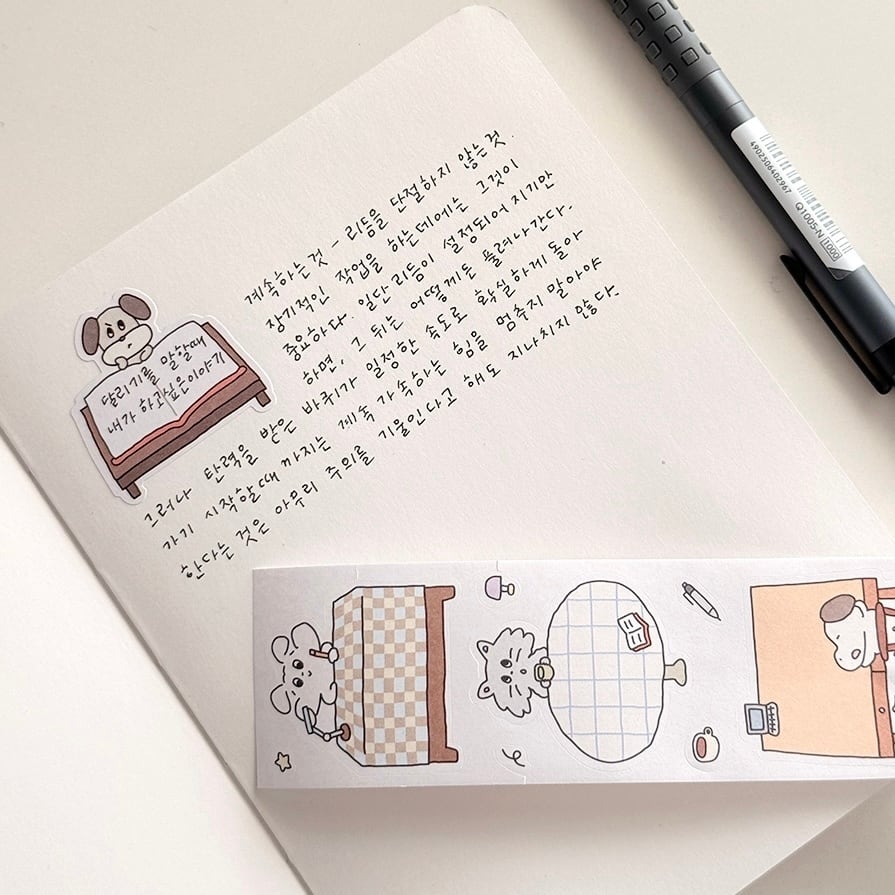 계속하는것 – 리듬을 단절하지 않는것.
장기적인 작업을 하는데에는 그것이
중요하다. 일단 리듬이 설정되어 지기만
하면, 그 뒤는 어떻게든 풀려나간다.
그러나 탄력을 받은 바퀴가 일정한 속도로 확실하게 돌아
가기 시작할때 까지는 계속 가속하는 힘을 멈추지 말아야
한다는 것은 아무리 주의를 기울인다고 해도 지나치지 않다.
달리기를 말할때
내가 하고싶은이야기
4902506402967
Q1005-N 1000